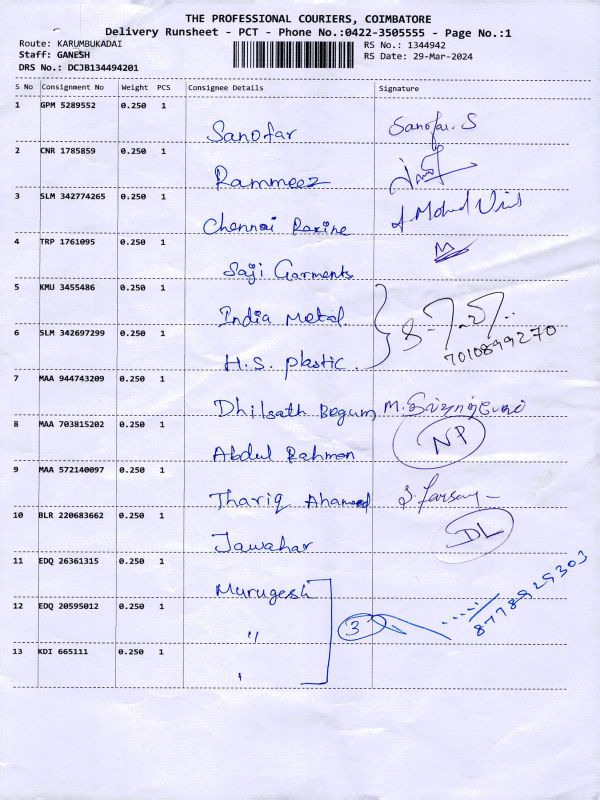 THE PROFESSIONAL COURIERS, COIMBATORE
Delivery Runsheet - PCT - Phone No.:0422-3505555 - Page No.:1
Route: KARUMBUKADAI RS No.: 1344942
Staff: GANESH RS Date: 29-Mar-2024
DRS No.: DCJB134494201
S No Consignment No Weight PCS Consignee Details Signature
1 GPM 5289552 0.250 1 Sanofar Sanofar. S
2 CNR 1785859 0.250 1 Rammeez
3 SLM 342774265 0.250 1 Chennai Rexine
4 TRP 1761095 0.250 1 Saji Garments M
5 KMU 3455486 0.250 1 India Metal
6 SLM 342697299 0.250 1 H.S. Plastic 7010899270
7 MAA 944743209 0.250 1 Dhilsath Begum
8 MAA 703815202 0.250 1 Abdul Rahman NP
9 MAA 572140097 0.250 1 Thariq Ahamed
10 BLR 220683662 0.250 1 Jawahar DL
11 EDQ 26361315 0.250 1 Murugesh
12 EDQ 20595012 0.250 1 " 3 8778929303
13 KDI 665111 0.250 1